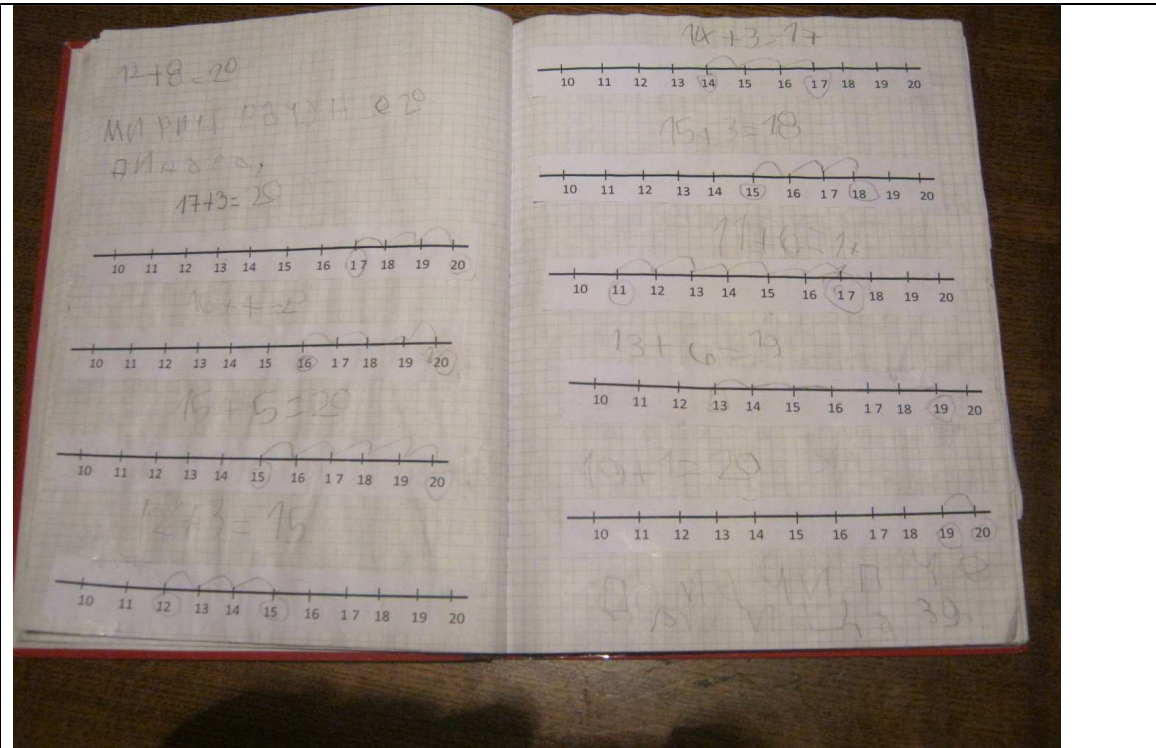 12+8=20
17+3=20
10 11 12 13 14 15 16 17 18 19 20
16+4=20
10 11 12 13 14 15 16 17 18 19 20
15+5=20
10 11 12 13 14 15 16 17 18 19 20
12+3=15
10 11 12 13 14 15 16 17 18 19 20
14+3=17
10 11 12 13 14 15 16 17 18 19 20
15+3=18
10 11 12 13 14 15 16 17 18 19 20
11+6=17
10 11 12 13 14 15 16 17 18 19 20
13+6=19
10 11 12 13 14 15 16 17 18 19 20
19+1=20
10 11 12 13 14 15 16 17 18 19 20